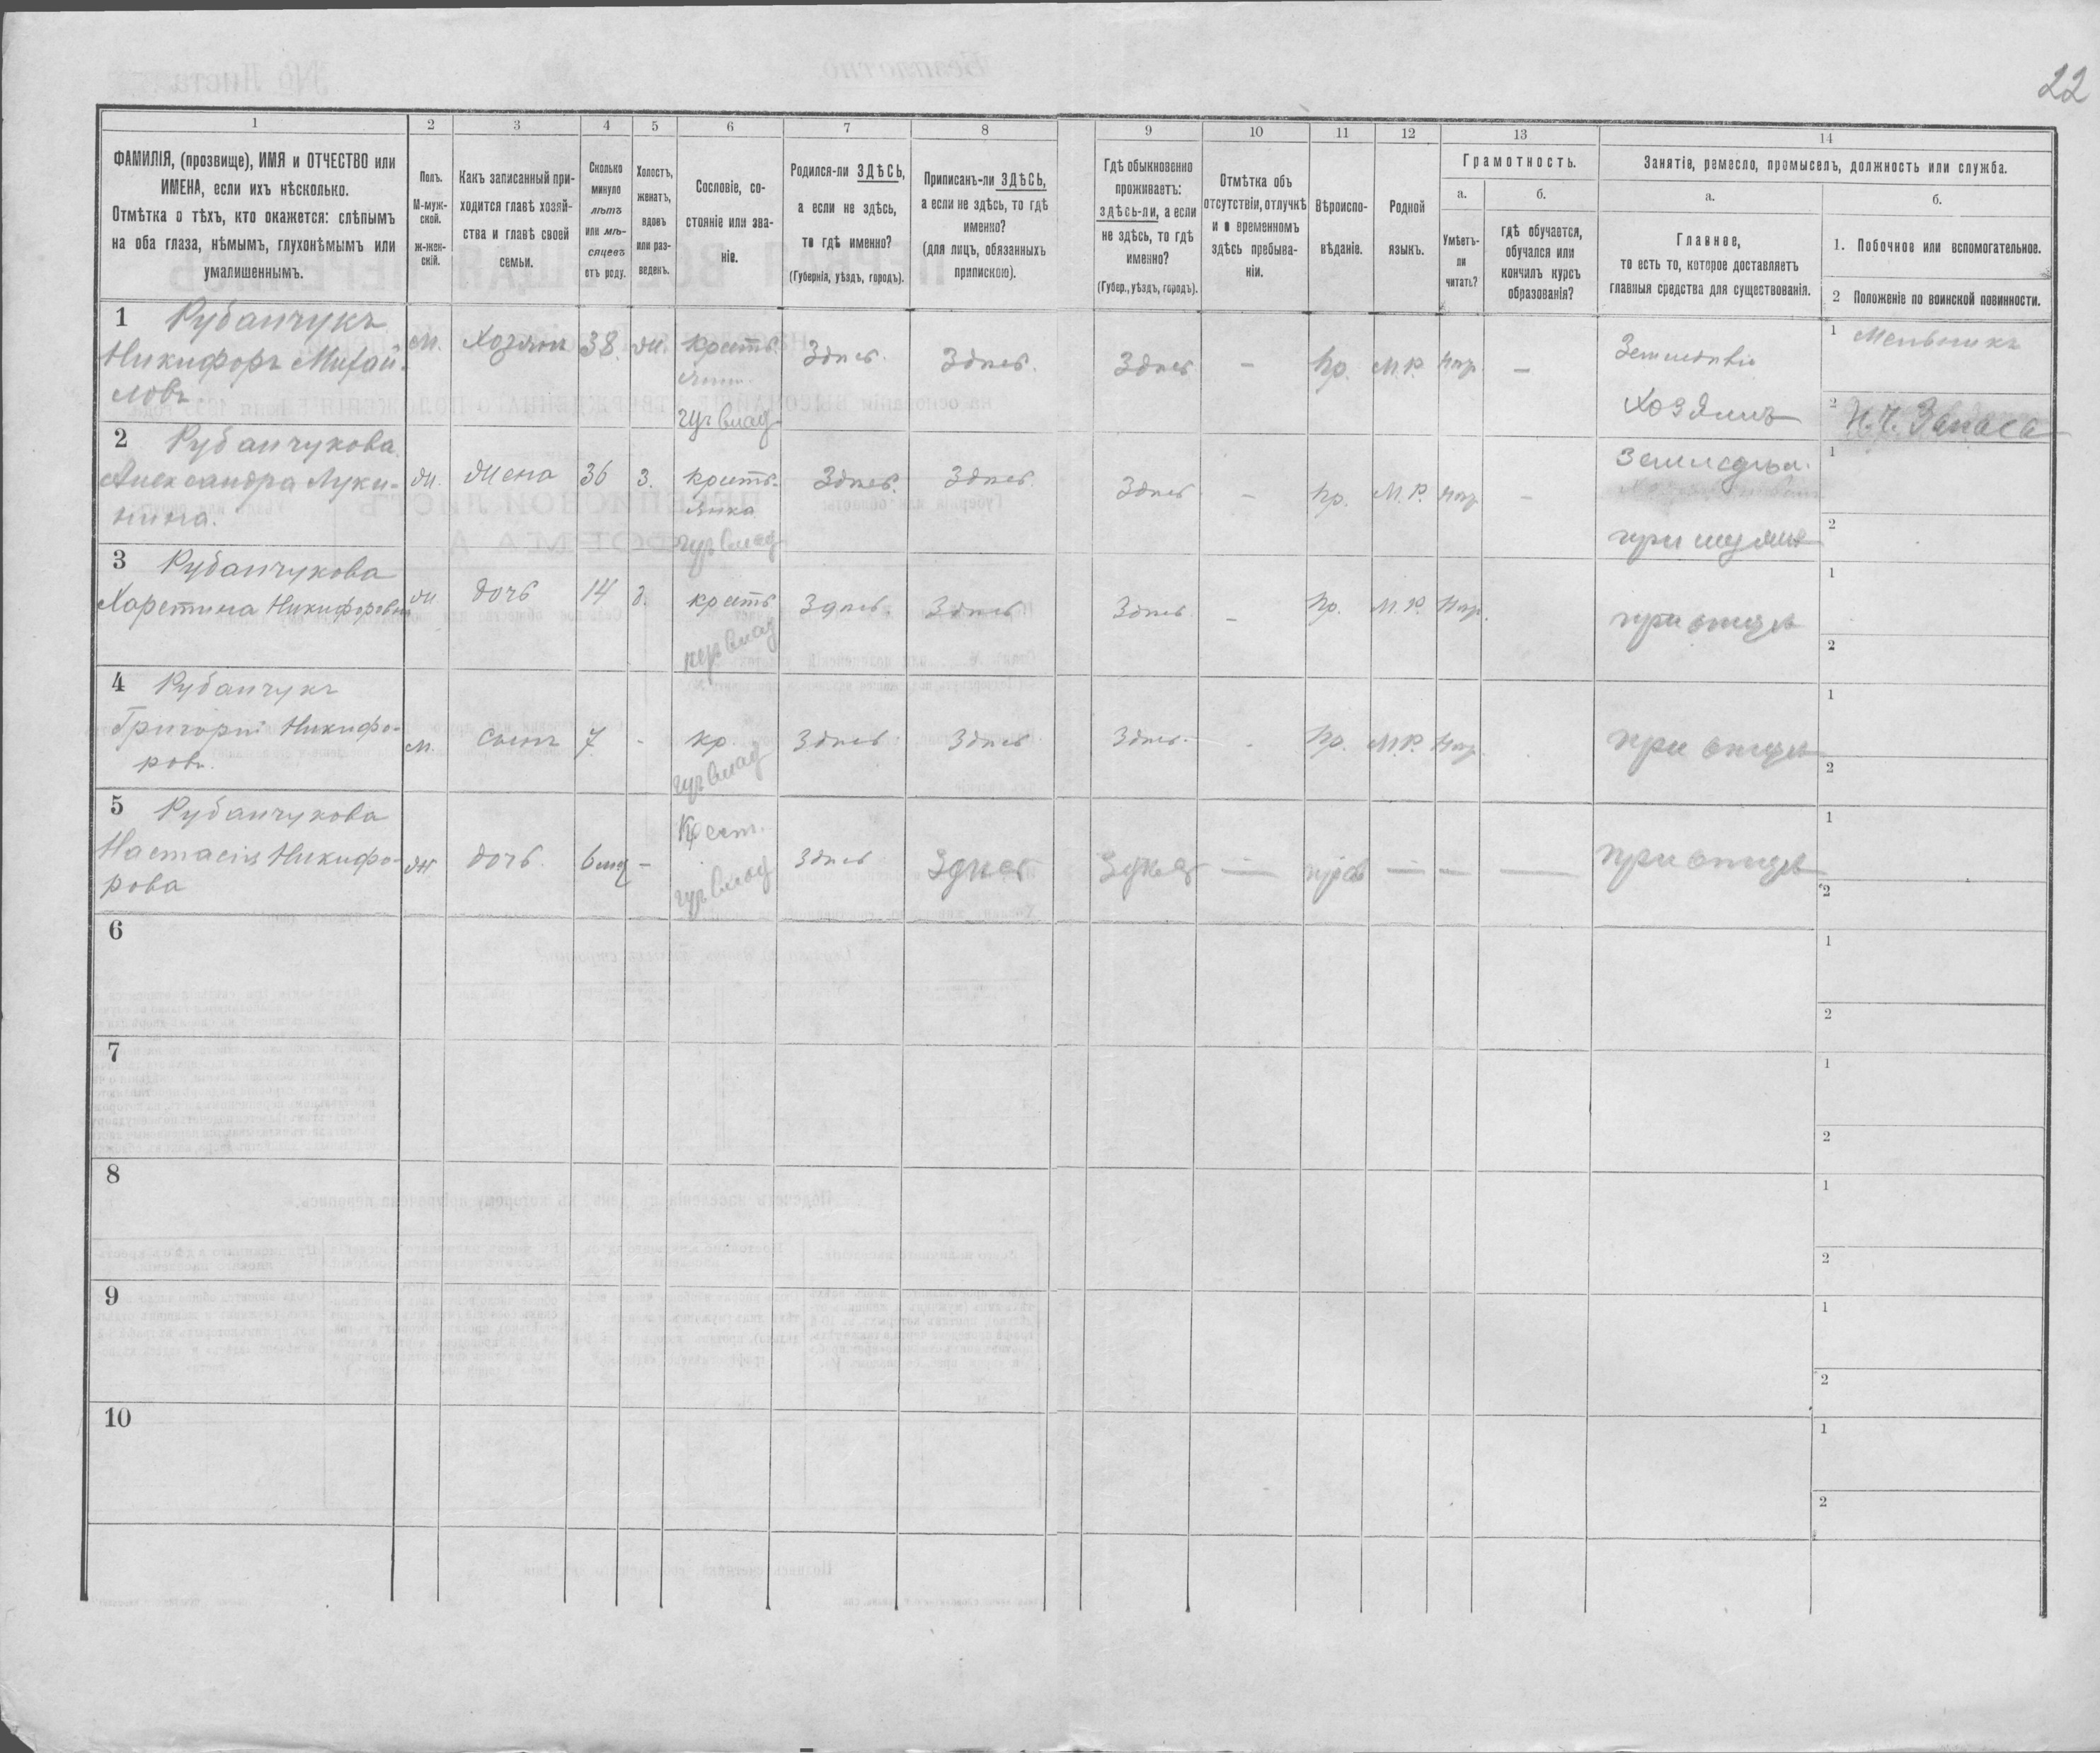 22
1
2
3
4
5
6
7
8
9
10
11
12
13
14
ФАМИЛІЯ, (прозвище), ИМЯ и ОТЧЕСТВО или
ИМЕНА, если ихъ нѣсколько.
Отмѣтка о тѣхъ, кто окажется: слѣпымъ
на оба глаза, нѣмымъ, глухонѣмымъ или
умалишеннымъ.
Полъ.
М-муж-
ской.
ж-жен-
скій.
Какъ записанный при-
ходится главѣ хозяй-
ства и главѣ своей
семьи.
Сколько
минуло
лѣтъ
или мѣ-
сяцевъ
отъ роду.
Холостъ,
женатъ,
вдовъ
или раз-
веденъ.
Сословіе, со-
стояніе или зва-
ніе.
Родился-ли ЗДѢСЬ,
а если не здѣсь,
то гдѣ именно?
(Губернія, уѣздъ, городъ).
Приписанъ-ли ЗДѢСЬ,
а если не здѣсь, то гдѣ
именно?
(для лицъ, обязанныхъ
припискою).
Гдѣ обыкновенно
проживаетъ:
здѣсь-ли, а если
не здѣсь, то гдѣ
именно?
(Губер., уѣздъ, городъ).
Отмѣтка объ
отсутствіи, отлучкѣ
и о временномъ
здѣсь пребыва-
ніи.
Вѣроиспо-
вѣданіе.
Родной
языкъ.
Грамотность.
а.
б.
Умѣетъ-
ли
читать?
гдѣ обучается,
обучался или
кончилъ курсъ
образованія?
Занятіе, ремесло, промыселъ, должность или служба.
а.
б.
Главное,
то есть то, которое доставляетъ
главныя средства для существованія.
1. Побочное или вспомогательное.
2 Положеніе по воинской повинности.
1 Рубанчукъ
Никифоръ Михай-
ловъ.
М. Хозяин 38. ж. крест.
Здѣсь. Здѣсь. Здѣсь — пр. М.Р. —
Земледѣліе
Хозяинъ
1 Мельникъ
2 Запаса
2 Рубанчукова
Александра Луки-
нина.
ж. жена 36 з. крест.
Здѣсь. Здѣсь. Здѣсь - пр. М.Р. -
Земледѣл.
при мужѣ
1
2
3 Рубанчукова
Харетина Никифоровна
ж дочь 14 д. крест
Здѣсь. Здѣсь Здѣсь - пр. М.Р.
при отцѣ
1
2
4 Рубанчукъ
Григорій Никифо-
ровъ.
м. сынъ 7 - кр.
Здѣсь Здѣсь Здѣсь - пр. М.Р.
при отцѣ
1
2
5 Рубанчукова
Настасія Никифо-
рова
ж дочь. 6 мѣ - Крест.
Здѣсь Здѣсь Здѣсь — прав — — —
при отцѣ
1
2
6
1
2
7
1
2
8
1
2
9
1
2
10
1
2